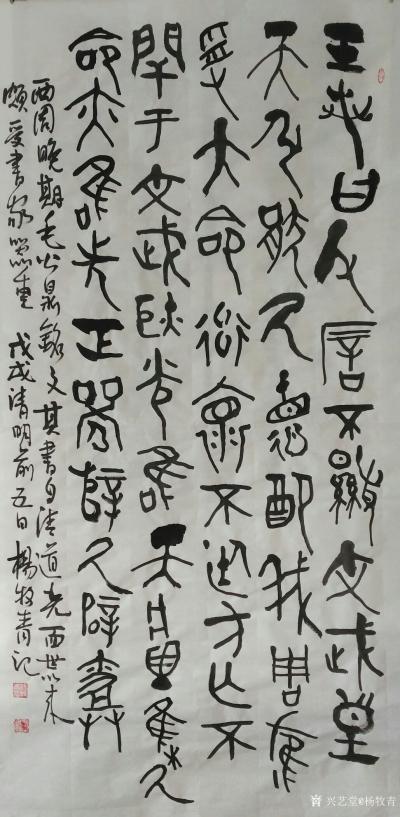 王若曰父厝不顯文武皇
天引猒氒德配我有周雁
受大命率懷不廷方亡不
閈于文武耿光唯天集氒
命亦唯先正辥氒辟
西周晚期毛公鼎銘文其書自清道光面世以來
頗受書家器重 戊戌清明前五日楊牧青記
兴艺堂@杨牧青